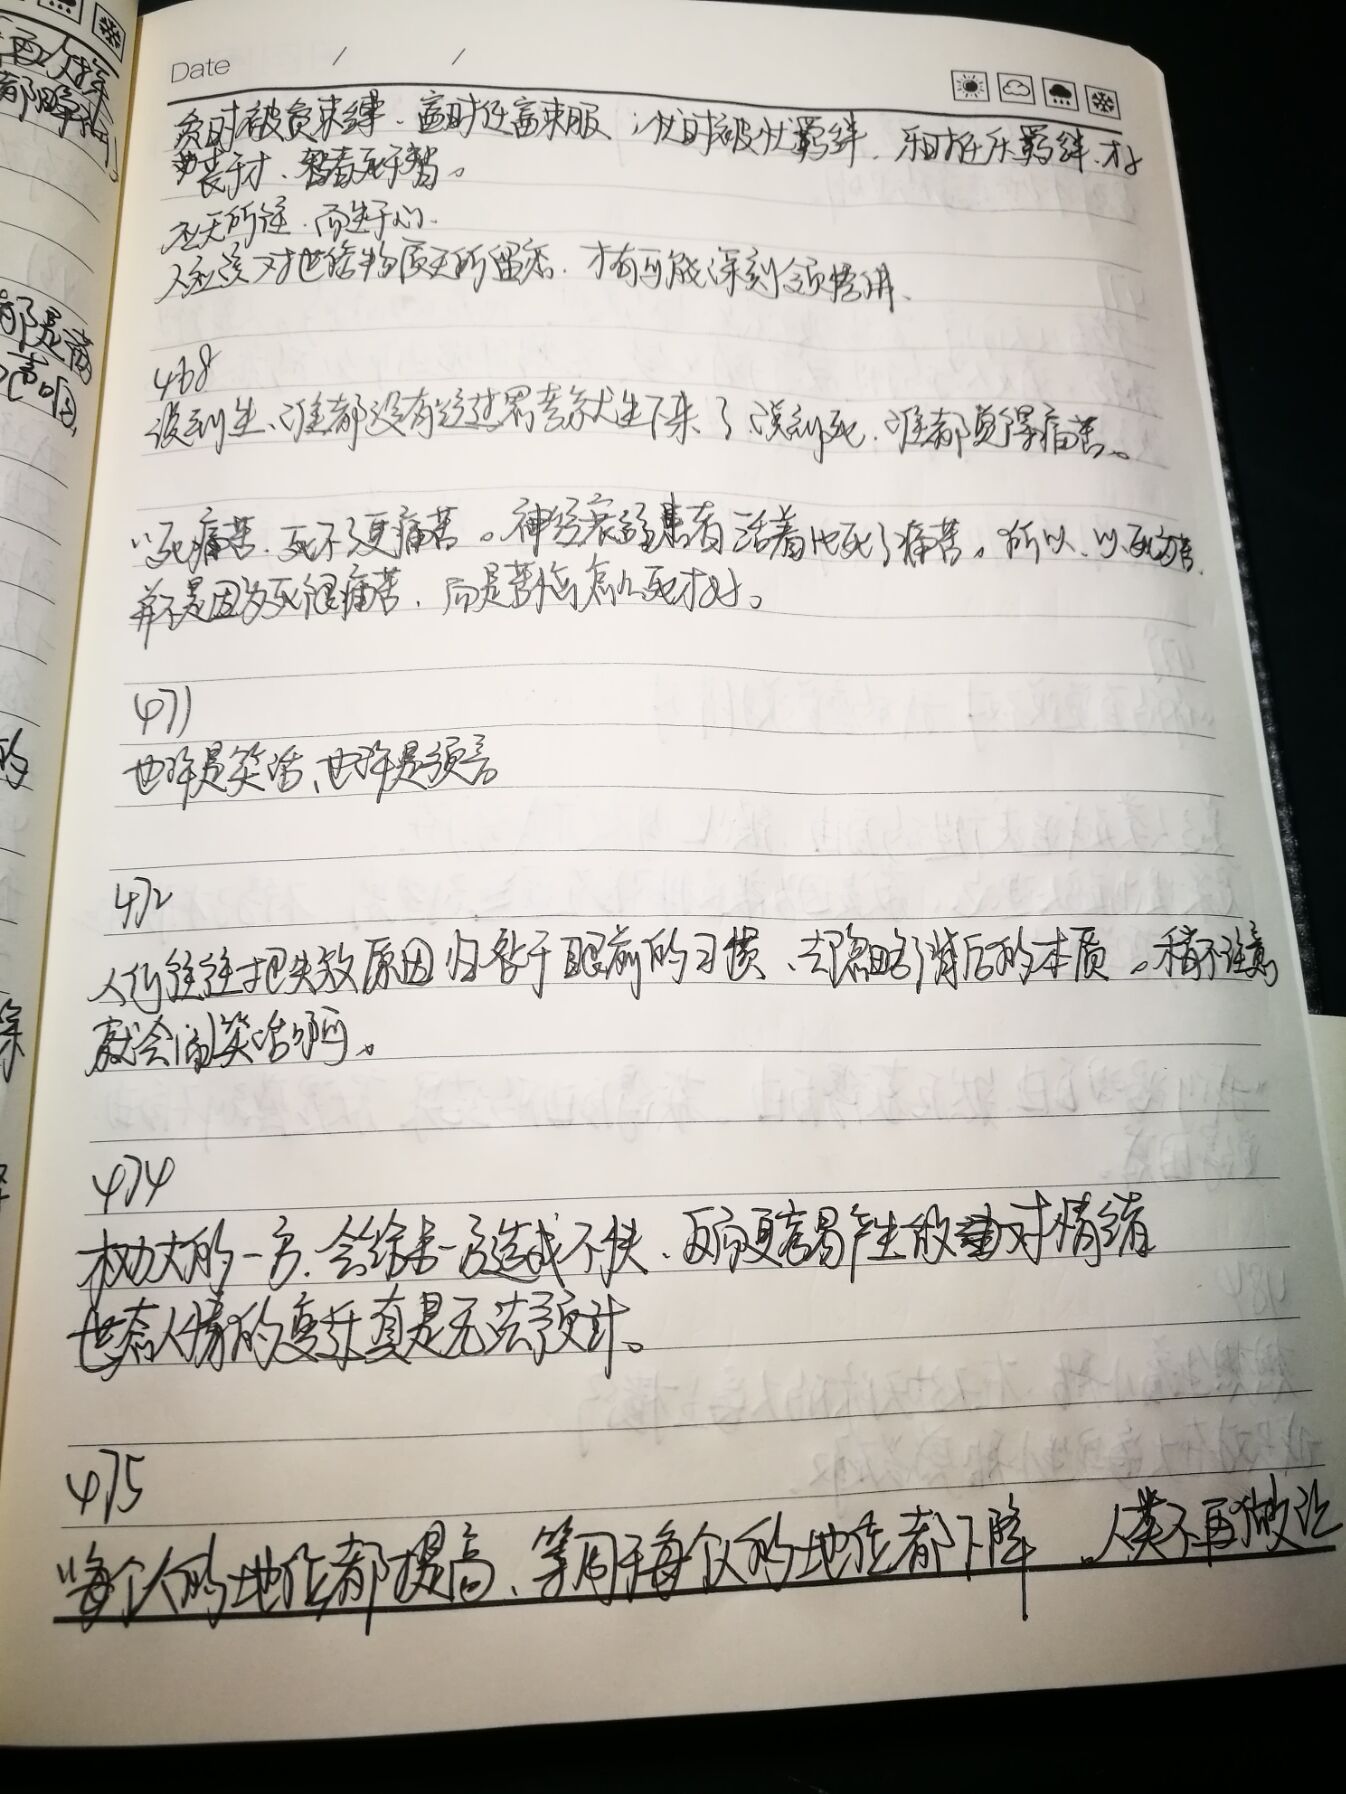 Date / /
贫时被贫束缚、富时任富束服；忧时被忧羁绊、乐时任乐羁绊、才
丧于才、智者死于智。
应无所住、而生于心、
人应该对世俗物质无所留恋、才有可能深刻领悟
468
谈到生、谁都没有这世界苦就生下来了、谈到死、谁都觉得痛苦。
死痛苦、死不了更痛苦。神经衰弱患者活着比死了痛苦。所以、以死为苦、
并不是因为死很痛苦、而是苦恼怎么死才好。
471
也许是笑话、也许是预言
472
人们往往把失败原因归咎于眼前的习惯、却忽略了背后的本质。稍不注意
就会闹笑话啊。
474
权力大的一方、会给未一方造成不快、反而更容易产生敌对情绪
世态人情的变乐真是无法预计。
475
“每个人的地位都提高、等同于每个人的地位都下降、人类不再做
都是痛
的